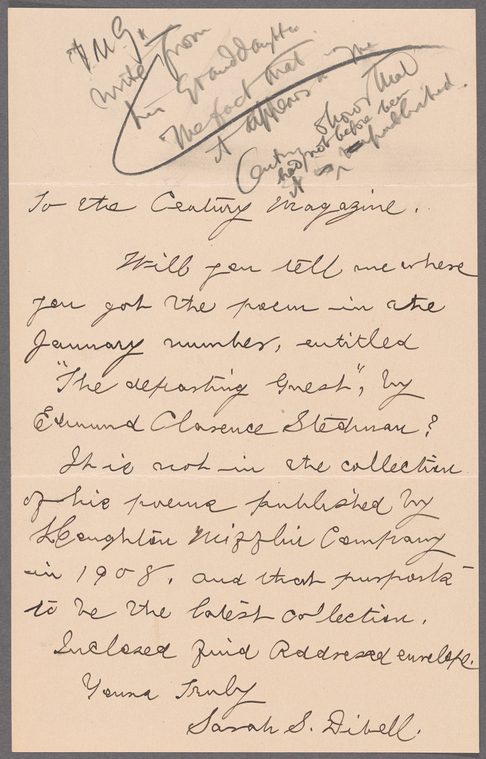 write from
his Granddaughter
"The fact that
it appears in The
Century shows that
it had not before been
published.
To the Century Magazine.
Will you tell me where
you got the poem in the
January number, entitled
"The departing Guest", by
Edmund Clarence Stedman?
It is not in the collection
of his poems published by
Houghton Mifflin Company
in 1908, and that purports
to be the latest collection.
Inclosed find Addressed envelope.
Yours Truly
Sarah S. Dibell.